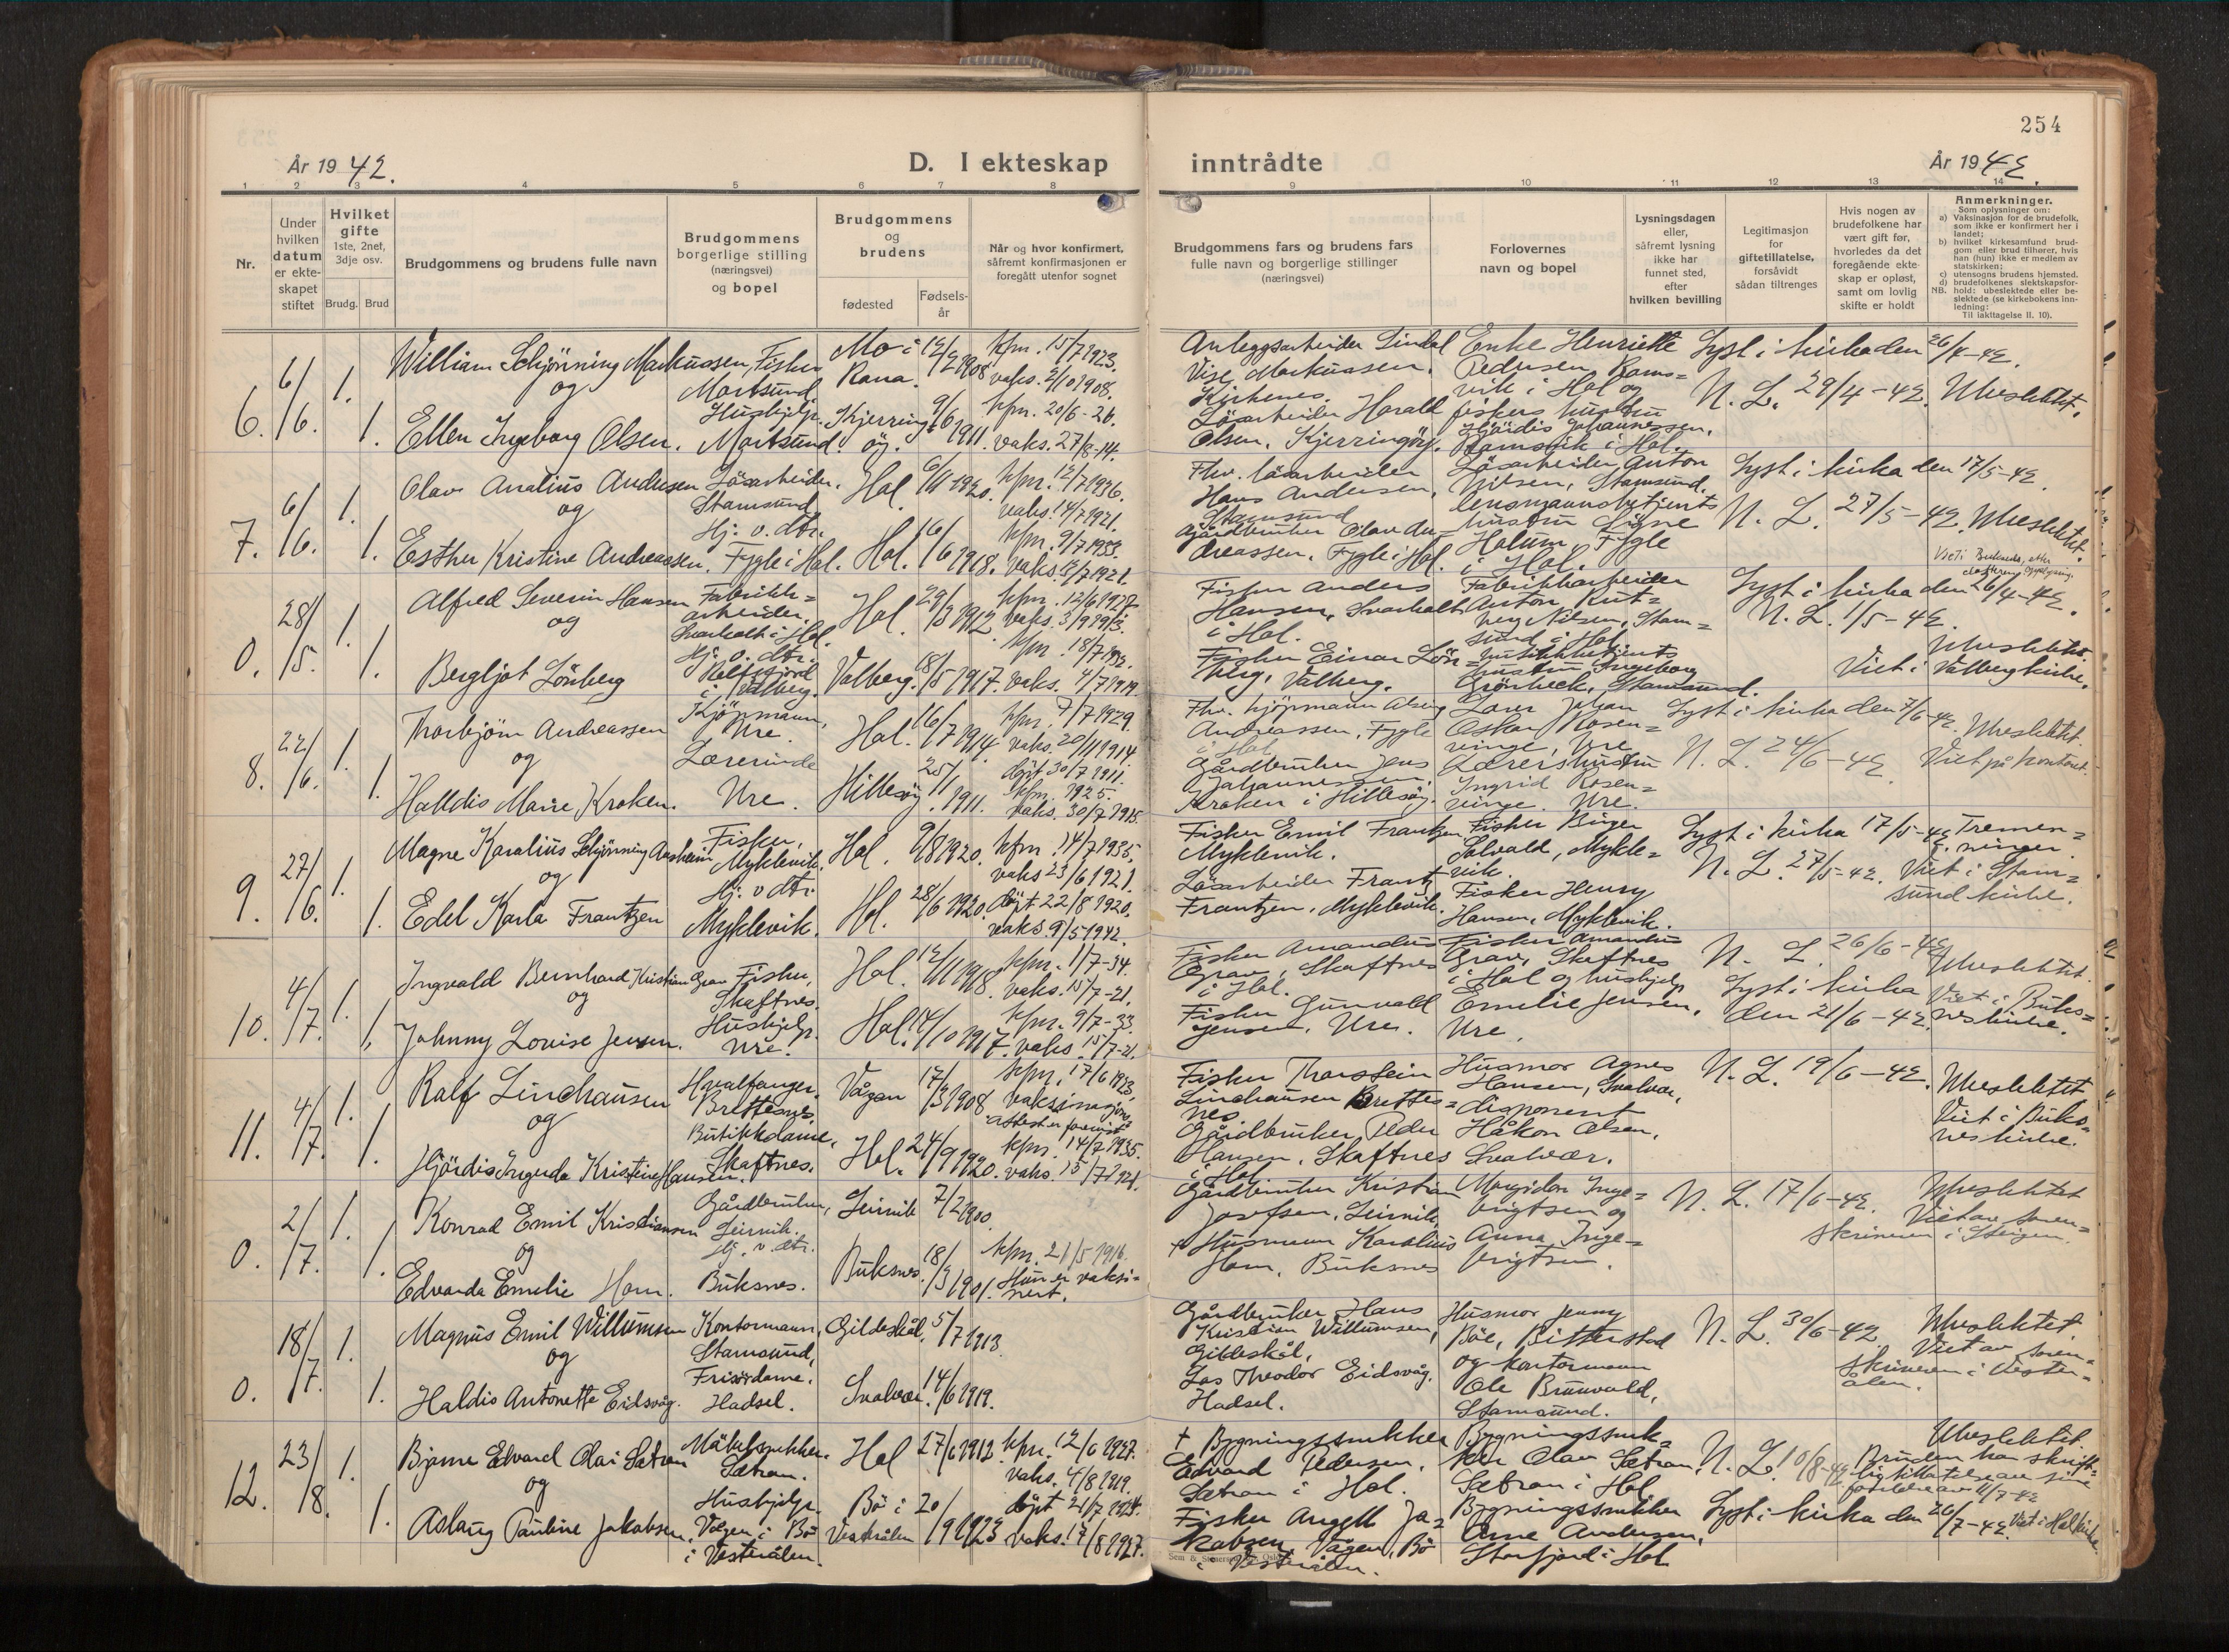 254
År 1942.
D. I ekteskap
inntrådte
År 1942.
1 2 3 4 5 6 7 8 9 10 11 12 13 14
Nr.
Under hvilken datum er ekteskapet stiftet
Hvilket gifte
1ste, 2net, 3dje osv.
Brudg. Brud
Brudgommens og brudens fulle navn
Brudgommens borgerlige stilling (næringsvei) og bopel
Brudgommens og brudens
fødested
Fødsels-år
Når og hvor konfirmert, såfremt konfirmasjonen er foregått utenfor sognet
Brudgommens fars og brudens fars fulle navn og borgerlige stillinger (næringsvei)
Forlovernes navn og bopel
Lysningsdagen eller, såfremt lysning ikke har funnet sted, efter hvilken bevilling
Legitimasjon for giftetillatelse, forsåvidt sådan tiltrenges
Hvis nogen av brudefolkene har vært gift før, hvorledes da det foregående ekteskap er opløst, samt om lovlig skifte er holdt
Anmerkninger.
Som oplysninger om:
a) Vaksinasjon for de brudefolk, som ikke er konfirmert her i landet;
b) hvilket kirkesamfund brudgom eller brud tilhører, hvis han (hun) ikke er medlem av statskirken;
c) utensogns brudens hjemsted.
d) brudefolkenes slektskapsforhold: ubeslektede eller beslektede (se kirkebokens innledning;
NB.
Til iakttagelse II. 10).
6. 6/6. 1. 1.
William Schjønning Markussen, Fisker
og
Mortsund.
Mo i Rana. 12/2 1908
kfm. 15/7 1923.
vaks. 2/10 1908.
Ellen Ingeborg Olsen.
Hushjelp. Mortsund.
Kjerringöy. 9/6 1911.
kfm. 20/6-26.
vaks. 27/8-14.
Anleggsarbeider Lindal
Vise Markussen,
Kirkenes.
Lösarbeider Harald
Olsen, Kjerringöy.
Enke Henriette
Pedersen, Ramsvik i Hol og
fiskers hustru
Hjördis Johannessen,
Ramsvik i Hol.
Lyst i kirka den 26/4-42.
N. L. 29/4-42. Ubeslektet.
7. 6/6. 1. 1.
Olav Analius Andersen
og
Lösarbeider.
Stamsund
Hol. 6/11 1920.
kfm. 12/7 1936.
vaks. 14/7 1921.
Esther Kristine Andreassen.
Hj. v. dtr.
Fygle i Hol.
Hol. 16/6 1918.
kfm. 9/7 1933.
vaks. 12/7 1921.
Fhv. lösarbeider
Hans Andersen,
Stamsund
Gårdbruker Olav Andreassen, Fygle i Hol.
Lösarbeider Anton
Nilsen, Stamsund.
lensmannsbetjents
hustru Signe
Holum, Fygle
i Hol.
Lyst i kirka den 17/5-42.
N. L. 27/5-42. Ubeslektet.
0. 28/5. 1. 1.
Alfred Severin Hansen
og
Fabrikkarbeider.
Svarholt i Hol.
Hol. 29/3 1912.
kfm. 12/6 1927.
vaks. 3/9 1913.
Bergljot Lönberg
Hj. v. dtr.
Rolfsfjord
i Valberg.
Valberg. 18/5 1917.
kfm. 18/7 1932.
vaks. 4/7 1919.
Fisker Anders
Hansen, Svarholt
i Hol.
Fisker Einar Lönberg, Valberg.
Fabrikkarbeider
Anton Rutberg Nilsen, Stamsund i Hol.
butikkbetjents
hustru Ingeborg
Grönbeck, Stamsund.
Lyst i kirka den 26/4-42.
N. L. 1/5-42.
Ubeslektet.
Viet i Valberg kirke.
8. 22/6. 1. 1.
Thorbjörn Andreassen
og
Kjöpmann,
Ure.
Hol. 16/7 1914.
kfm. 7/7 1929.
vaks. 20/11 1914.
Halldis Marie Kroken.
Lærerinde
Ure.
Hillesöy. 25/11 1911.
döpt 30/7 1911.
kfm. 1925.
vaks. 30/7 1915.
Fhv. kjöpmann
Andreassen, Fygle
i Hol.
Gårdbruker Jens
Johannessen
Kroken i Hillesöy.
Lærer Johan
Oskar Rosenvinge, Ure
Lærers hustru
Ingrid Rosenvinge. Ure.
Lyst i kirka den 7/6-42. Ubeslektet.
N. L. 24/6-42. Viet på kontoret.
9. 27/6. 1. 1.
Magne Karalius Schjönning Aasheim
og
Fisker,
Myklevik.
Hol. 9/8 1920.
kfm. 14/7 1935.
vaks 23/6 1921.
Edel Karla Frantzen
Hj. v dtr.
Myklevik.
Hol. 28/6 1920.
döpt 22/8 1920.
vaks. 9/5 1942.
Fisker Emil Frantzen
Myklevik.
Lösarbeider Frantz
Frantzen, Myklevik.
Fisker Birger
Solvald, Myklevik.
Fisker Henry
Hansen, Myklevik.
Lyst i kirka 17/5-42. Tremenninger.
N. L. 27/5-42. Viet i Stamsund kirke.
10. 4/7. 1. 1.
Ingvald Bernhard Kristian Grav
og
Fisker,
Skaftnes.
Hol. 12/11 1918.
kfm. 1/7-34.
vaks. 15/7-21.
Johnny Lovise Jensen.
Hushjelp.
Ure.
Hol. 14/10 1917.
kfm. 9/7-33.
vaks. 15/7-21.
Fisker Amandus
Grav, Skaftnes
i Hol.
Fisker Gunvald
Jensen, Ure.
Fisker Amandus
Grav, Skaftnes
i Hol og hushjelp
Emelie Jensen,
Ure.
N. L. 26/6-42
Lyst i kirka
den 21/6-42.
Ubeslektet.
Viet i Buksnes kirke.
11. 4/7. 1. 1.
Ralf Linchausen
og
Hvalfanger.
Brettesnes
Vågan 17/3 1908
kfm. 17/6 1923,
vaksinasjonsattest er forevist
Hjördis Ingerda Kristine Hansen.
Butikkdame,
Skaftnes.
Hol. 24/9 1920.
kfm. 14/7 1935.
vaks. 15/7 1921.
Fisker Thorstein
Linchausen Brettesnes
Gårdbruker Peder
Hansen, Skaftnes
i Hol
Husmor Agnes
Hansen, Svolvær,
disponent
Håkon Olsen,
Svolvær.
N. L. 19/6-42. Ubeslektet
Viet i Buksnes kirke.
0. 2/7. 1. 1.
Konrad Emil Kristiansen
og
Gårdbruker,
Leirvik.
Leirvik 7/2 1900.
Edvarda Emelie Horn.
Hj. v. dtr.
Buksnes.
Buksnes. 18/3 1901.
kfm. 21/5 1916.
Hun er vaksinert.
Gårdbruker Kristian
Josefsen, Leirvik,
+ Husmann Karolius
Horn, Buksnes
Magidon Ingebrigtsen og
Anna Ingebrigtsen.
N. L. 17/6-42. Ubeslektet
Viet av sorenskriveren i Steigen.
0. 18/7. 1. 1.
Magnus Emil Willumsen
og
Kontormann,
Stamsund,
Gildeskål, 5/7 1913.
Haldis Antonette Eidsvåg.
Frisördame.
Hadsel.
Svolvær. 14/6 1919.
Gårdbruker Hans
Kristian Willumsen,
Gilleskål,
Las Theodor Eidsvåg.
Hadsel.
Husmor Jenny
Böe, Bitterstad
og kontormann
Ole Brunvold,
Stamsund.
N. L. 30/6-42 Ubeslektet.
Viet av sorenskriveren i Vesterålen.
12. 23/8. 1. 1.
Bjarne Edvard Olai Sætran
og
Möbelsnekker.
Sætran.
Hol 27/6 1912.
kfm. 12/6 1927.
vaks. 4/8 1919.
Aslaug Pauline Jakobsen.
Hushjelp.
Vågen i Bö
i Vesterålen.
Bö i Vesterålen 20/9 1923
döpt 21/7 1924.
vaks. 17/8 1927.
+ Bygningssnekker
Edvard Pedersen,
Sætran i Hol.
Fisker Angell Jakobsen, Vågen, Bö
i Vesterålen.
Bygningssnekker Olav Sætran,
Sætran i Hol
Bygningssnekker
Arne Andersen,
Storfjord i Hol
N. L. 10/8-42
Lyst i kirka den 26/7-42.
Ubeslektet.
Bruden har skriftlig tillatelse av sine
foreldre av 11/7-42
Viet i Hol kirke.